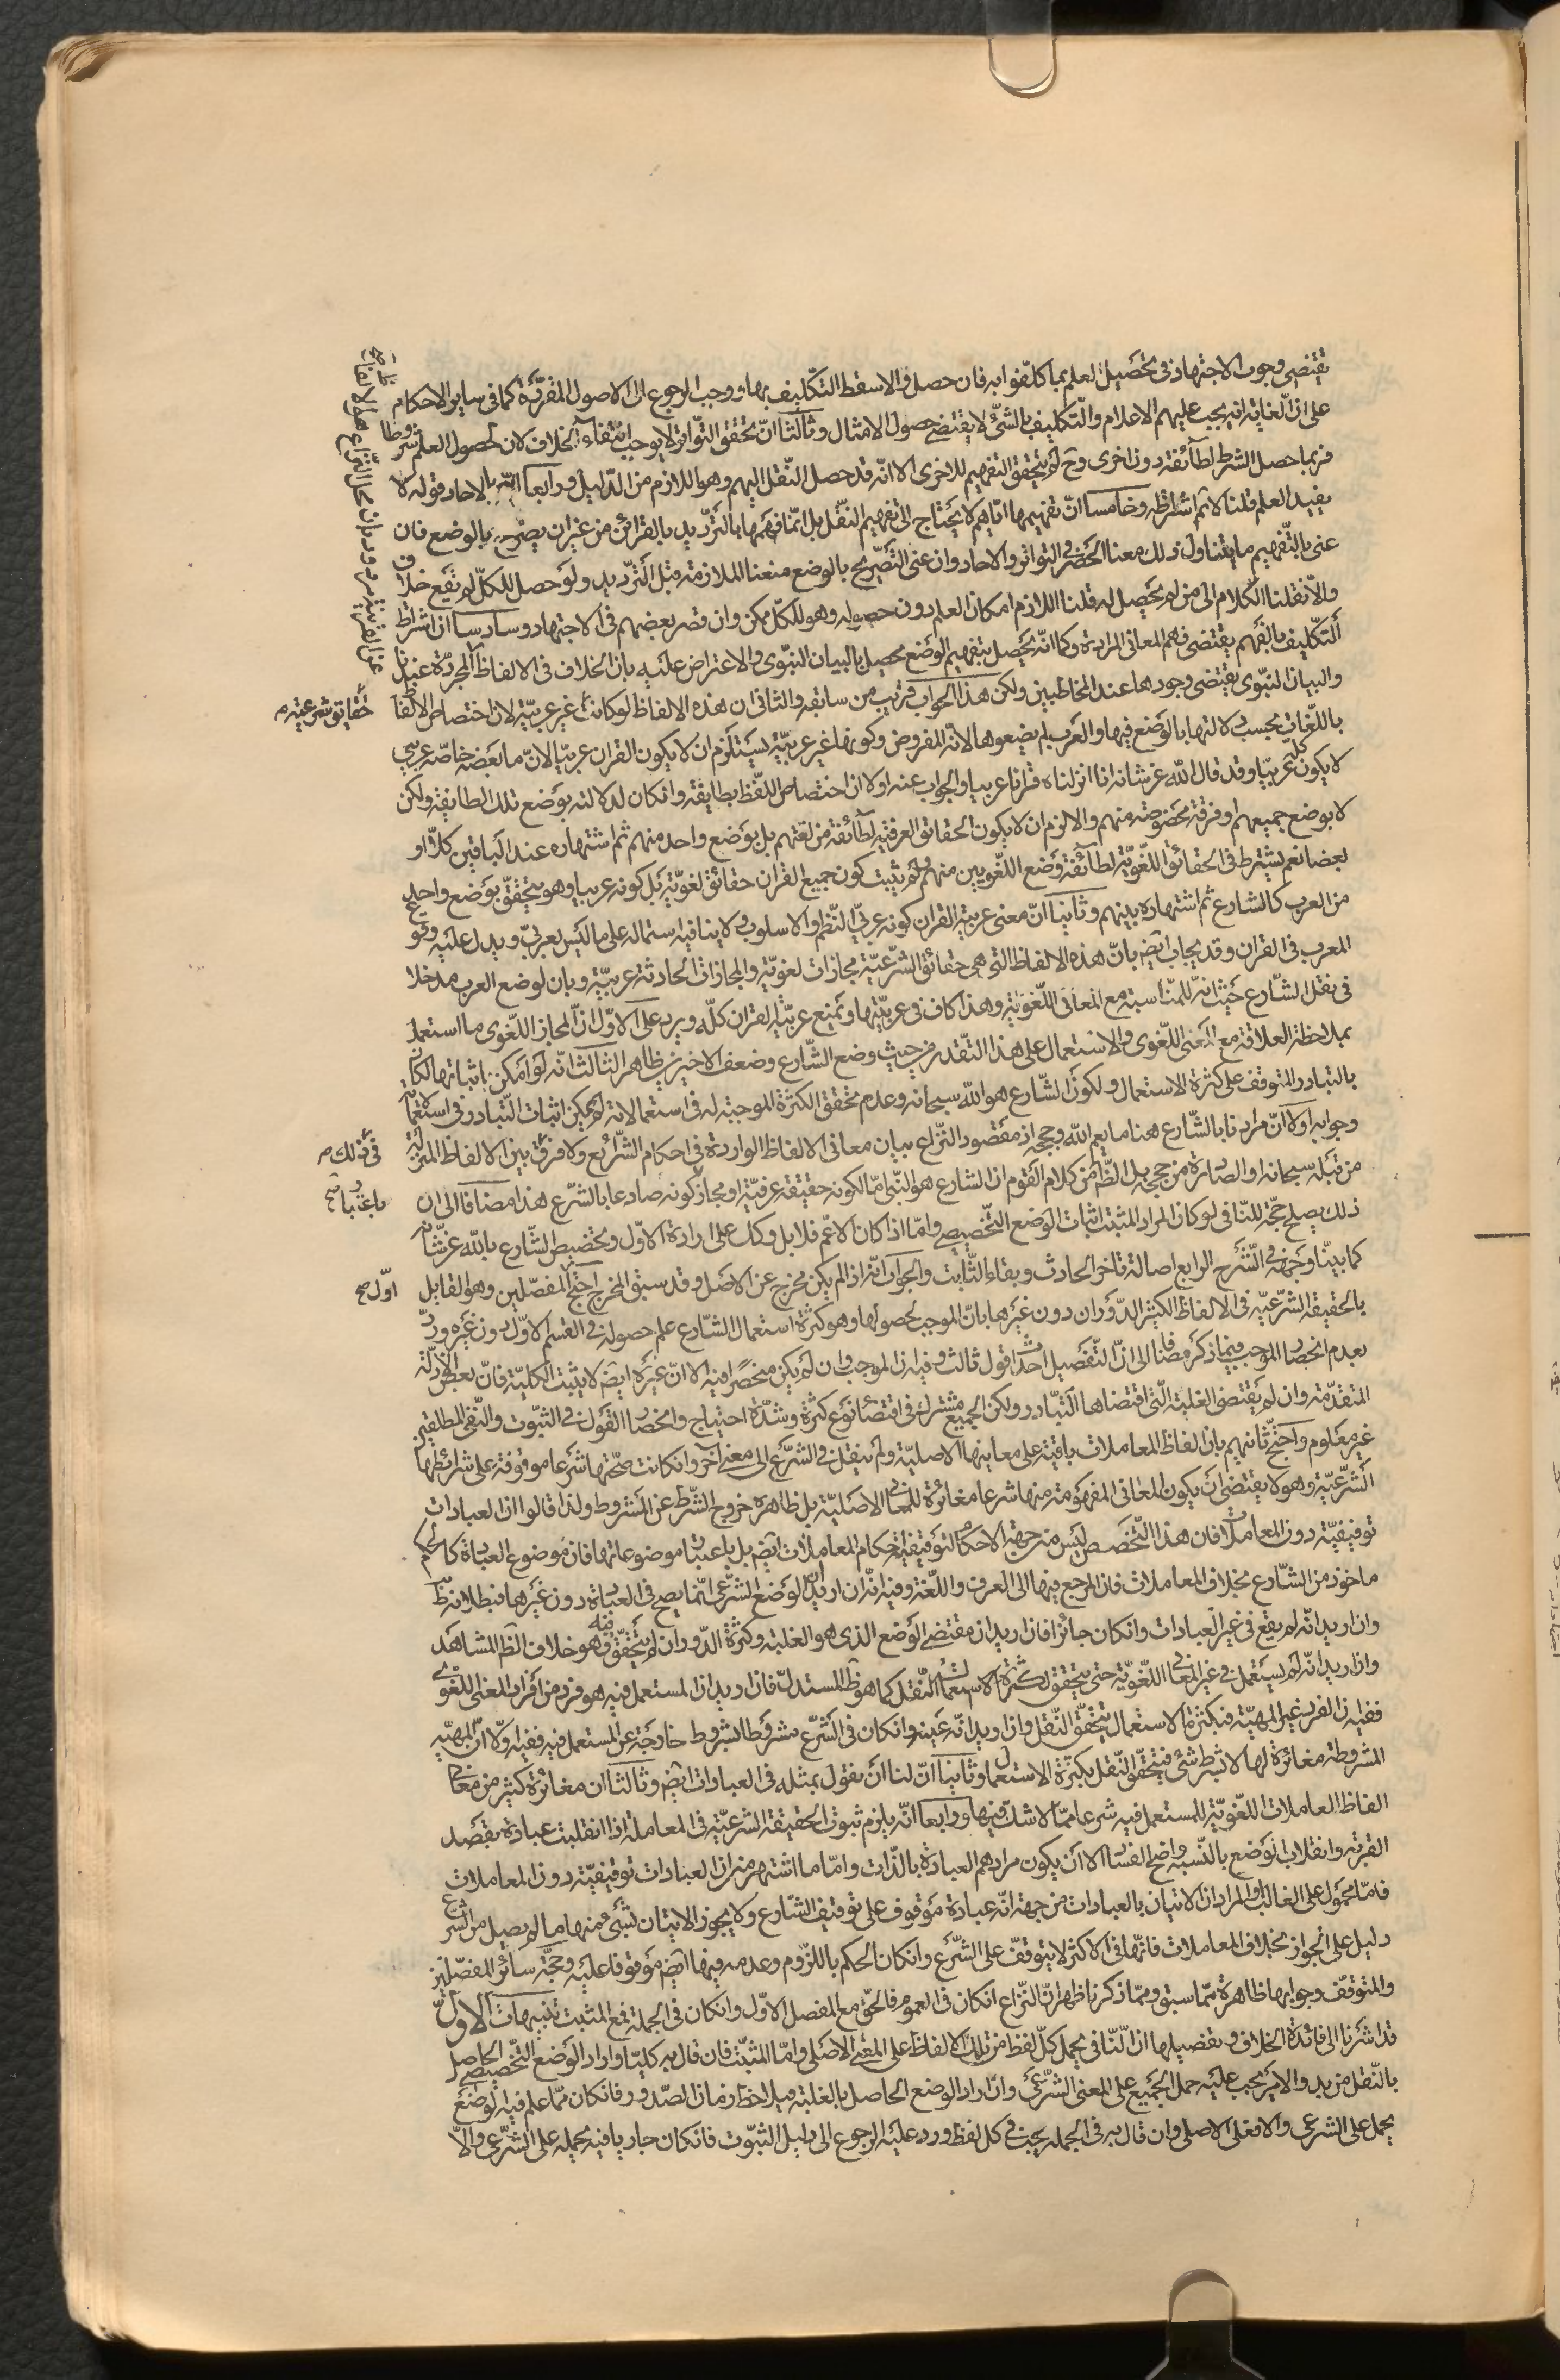 تقتضي وجوب الاجتهاد في تحصيل العلم بما كلفوا به فان حصل والا سقط التكليف بها ووجب الرجوع الى الاصول المقررة كما في ساير الاحكام
على ان الغاية انه يجب عليهم الاعلام والتكليف بالشئ لا يقتضي حصول الامتثال وثالثا ان تحقق التواتر لا يوجب انتفاء الخلاف لان لحصول العلم شروطا
فربما حصل الشرط لطائفة دون اخرى وح لم يتحقق التفهيم للاخرى الا انه قد حصل النقل اليهم وهو اللازم من الدليل ورابعا بالاحاد قوله لا
يفيد العلم قلنا لا ثم اشتراطه وخامسا ان تفهيمها اياهم لا يحتاج الى تفهيم النقل بل انما فهمها بالترديد بالقرائن من غير ان يصرح بالوضع فان
عنى بالتفهيم ما يتناول ذلك معنا الحصر في التواتر والاحاد وان عنى التصريح بالوضع منعنا الملازمة قبل الترديد ولو حصل للكل لم يقع خلاف
والا نقلنا الكلام الى من لم يحصل له قلنا اللازم امكان العلم دون حصوله وهو للكل ممكن وان قصر بعضهم في الاجتهاد وسادسا ان اشتراط
التكليف بالفهم يقتضي فهم المعاني المرادة وكما انه يحصل بتفهيم الوضع يحصل بالبيان النبوي والاعتراض عليه بان الخلاف في الالفاظ المجردة
عن القرينة مردود بان محل النزاع هذه الالفاظ
والبيان النبوي يقتضي وجودها عند المخاطبين ولكن هذا الجواب قريب من سابقه والثاني ان هذه الالفاظ لو كانت غير عربية لان اختصاص الالفاظ
حقايق شرعية
باللغات بحسب دلالتها بالوضع فيها والعرب لم يضعوها لانه المفروض وكونها غير عربية يستلزم ان لا يكون القران عربيا لان ما بعضه خاصة عربي
لا يكون كله عربيا وقد قال الله عز شانه انا انزلناه قرانا عربيا والجواب عنه اولا ان اختصاص اللفظ بطايفة وان كان لدلالته بوضع تلك الطايفة ولكن
لا بوضع جميعهم او فرقة مخصوصة منهم والا لزم ان لا يكون الحقائق العرفية لطائفة من لغتهم بل بوضع واحد منهم ثم اشتهاره عند الباقين كلا او
بعضا نعم يشترط في الحقائق اللغوية لطائفة وضع اللغويين منهم ولم يثبت كون جميع القران حقائق لغوية بل كونه عربيا وهو يتحقق بوضع واحد
من العرب كالشارع ثم اشتهاره بينهم وثانيا ان معنى عربية القران كونه عربي النظم والاسلوب ولا ينافيه اشتماله على ما ليس بعربي ويدل عليه وقوع
المعرب في القران وقد يجاب ايض بان هذه الالفاظ التي هي حقائق الشرعية مجازات لغوية والمجازات الحادثة عربية وبان لوضع العرب مدخلا
في نقل الشارع حيث انه للمناسبة مع المعاني اللغوية وهذا كاف في عربيتها وبمنع عربية القران كله ويرد على الاول ان المجاز اللغوي ما استعمل
بملاحظة العلاقة مع المعنى اللغوي والاستعمال على هذا التقدير من حيث وضع الشارع وضعف الاخيرين ظاهر الثالث انه لو امكن اثباتها لكان
بالتبادر المتوقف على كثرة الاستعمال ولكون الشارع هو الله سبحانه وعدم تحقق الكثرة الموجبة له في استعمالاته لم يمكن اثبات التبادر في استعماله
وجوابه اولا ان مرادنا بالشارع هنا ما يعم الله وحججه اذ مقصود النزاع بيان معاني الالفاظ الواردة في احكام الشرائع ولا فرق بين الالفاظ المنزلة
في ذلك
من قبله سبحانه والصادرة من حججه بل الظ من كلام القوم ان الشارع هو النبي اما لكونه حقيقة عرفية او مجاز كونه صادعا بالشرع هذا مضافا الى ان
باعتبار صح
ذلك يصلح حجة للنافي لو كان المراد المثبت اثبات الوضع التخصيصي واما اذا كان الاعم فلا بل وكك على ارادة الاول وتخصيص الشارع بالله عز شانه
كما بينا وجهه في الشرح الرابع اصالة تاخر الحادث وبقاء الثابت والجواب انه اذا لم يكن مخرج عن الاصل وقد سبق المخرج احتج المفصلين وهو القايل
اول صح
بالحقيقة الشرعية في الالفاظ الكثير الدوران دون غيرها بان الموجب لحصولها وهو كثرة استعمال الشارع علم حصوله في القسم الاول دون غيره ورد
بعدم انحصار الموجب فيما ذكر مضافا الى ان التفصيل احداث قول ثالث وفيه ان الموجب وان لم يكن منحصرا فيه الا ان غيره ايض لا يثبت الكلية فان بعض الادلة
المتقدمة وان لم يقتض الغلبة التي اقتضاها التبادر ولكن الجميع مشترك في اقتضاء نوع كثرة وشدة احتياج وانحصار القول في الثبوت والنفي المطلقين
غير معلوم واحتج ثانيهم بان الفاظ المعاملات باقية على معانيها الاصلية ولم ينقل في الشرع الى معنى آخر وان كانت صحتها شرعا موقوفة على شرائطها
الشرعية وهو لا يقتضي ان يكون المعاني المفهومة منها شرعا مغائرة للمعاني الاصلية بل ظاهره خروج الشرط عن المشروط ولذا قالوا ان العبادات
توقيفية دون المعاملات فان هذا التخصص ليس من جهة الاحكام لتوقيفية احكام المعاملات ايض بل باعتبار موضوعاتها فان موضوع العبادة كالحكم
ماخوذ من الشارع بخلاف المعاملات فان المرجع فيها الى العرف واللغة وفيه انه ان اريد ان الوضع الشرعي انما يصح في العبادة دون غيرها فبطلانه ظ
وان اريد انه لم يقع في غير العبادات وان كان جائزا فان اريد ان مقتضي الوضع الذي هو الغلبة وكثرة الدوران لم يتحقق فيه فهو خلاف الظ المشاهد
وان اريد انه لم يستعمل في غير المعاني اللغوية حتى يتحقق لكثرة الاستعمال النقل كما هو ظ المستدل فان اريد ان المستعمل فيه هو فرد من افراد المعنى اللغوي
ففيه ان الفرد غير المهية فبكثرة الاستعمال يتحقق النقل وان اريد انه عينه وان كان في الشرع مشروطا بشروط خارجة عن المستعمل فيه ففيه اولا ان المهية
المشروطة مغائرة لها لا بشرط شئ فيتحقق النقل بكثرة الاستعمال وثانيا ان لنا ان نقول بمثله في العبادات ايض وثالثا ان مغائرة كثير من معاني
الفاظ المعاملات اللغوية للمستعمل فيه شرعا مما لا شك فيها ورابعا انه يلزم ثبوت الحقيقة الشرعية في المعاملة اذا انقلبت عبادة بقصد
القربة وانقلاب الوضع بالنسبة واضح الفساد الا ان يكون مرادهم العبادة بالذات واما ما اشتهر من ان العبادات توقيفية دون المعاملات
فاما محمول على الغالب او المراد ان الاتيان بالعبادات من جهة انه عبادة موقوف على توقيف الشارع ولا يجوز الاتيان بشئ منها ما لم يصل من الشرع
دليل على الجواز بخلاف المعاملات فانها في الاكثر لا يتوقف على الشرع وان كان الحكم باللزوم وعدمه فيها ايض موقوفا عليه وحجة سائر المفصلين
والمتوقف وجوابها ظاهرة مما سبق ومما ذكرنا ظهر ان النزاع ان كان في العموم فالحق مع المفصل الاول وان كان في الجملة فمع المثبت تنبيهات الاول
قد اشرنا الى فائدة الخلاف وتفصيلها ان النافي يحمل كل لفظ من تلك الالفاظ على المعنى الاصلي واما المثبت فان قال به كليا واراد الوضع التخصيصي الحاصل
بالنقل من بدو الامر يجب عليه حمل الجميع على المعنى الشرعي وان اراد الوضع الحاصل بالغلبة فيلاحظ زمان الصدور فان كان مما علم فيه الوضع
يحمل على الشرعي والا فعلى الاصلي وان قال به في الجملة يجب في كل لفظ ورد عليه الرجوع الى دليل الثبوت فان كان جاريا فيه يحمله على الشرعي والا